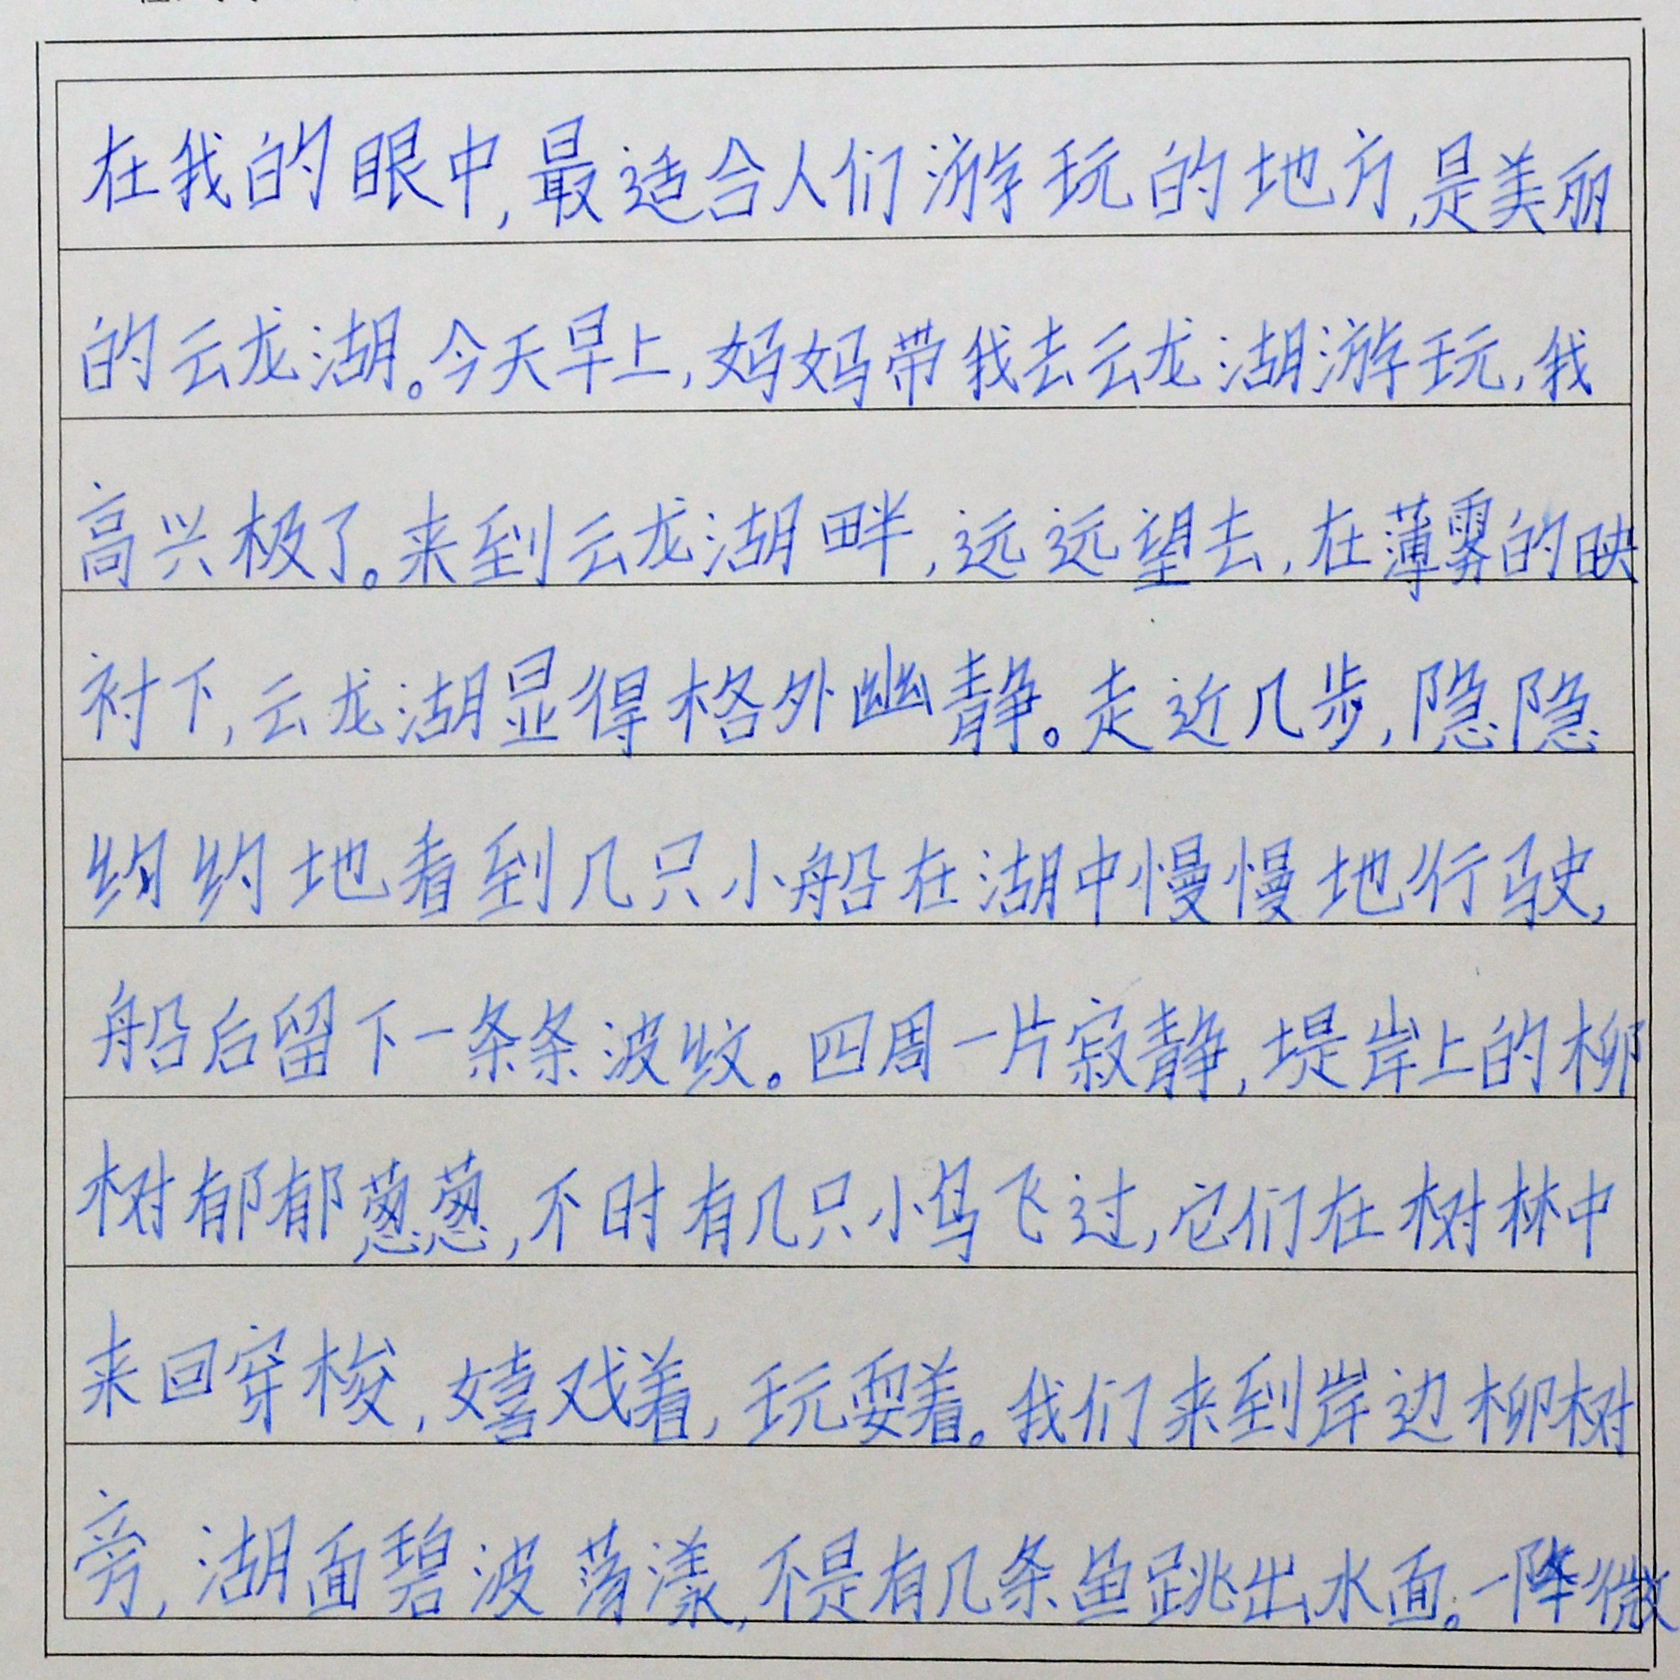 在我的眼中,最适合人们游玩的地方,是美丽
的云龙湖。今天早上,妈妈带我去云龙湖游玩,我
高兴极了。来到云龙湖畔,远远望去,在薄雾的映
衬下,云龙湖显得格外幽静。走近几步,隐隐
约约地看到几只小船在湖中慢慢地行驶,
船后留下一条条波纹。四周一片寂静,堤岸上的柳
树郁郁葱葱,不时有几只小鸟飞过,它们在树林中
来回穿梭,嬉戏着,玩耍着。我们来到岸边柳树
旁,湖面碧波荡漾,不是有几条鱼跳出水面。一降微